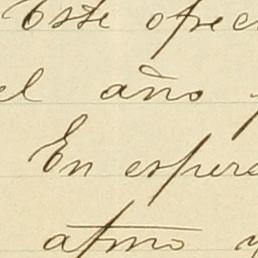 Este ofrec
el año
En espera
atmo y